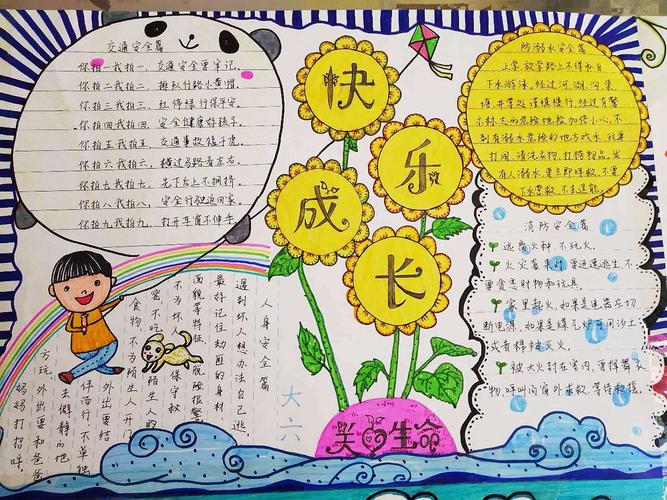 交通安全篇
你拍一我拍一,交通安全要牢记。
你拍二我拍二,排队行路小黄帽。
你拍三我拍三,红停绿行保平安。
你拍四我拍四,安全健康好孩子。
你拍五我拍五,交通事故猛于虎。
你拍六我拍六,横过马路看左右。
你拍七我拍七,先下后上不拥挤。
你拍八我拍八,安全行驶返回家。
你拍九我拍九,打开车窗不伸手。
快
乐
成
长
防溺水安全篇
上学放学路上不得私自
下水游泳,经过河、湖、河
塘、井等处要慎绕行,经过有警
示标志的危险地段加倍小心,不
到有溺水危险的地方戏水、玩耍
打闹、清洗衣物、打捞物品。发
有人溺水要立即呼救,不要
下水营救,不去逞能。
消防安全篇
远离火种,不玩火。
火灾袭来时要迅速逃生,不
要贪恋财物和玩具。
家里起火,如果是电器应切
断电源,如果是煤气炉可用沙土
或者棉被灭火。
被大火封在室内,要挥舞衣
物,呼叫向窗外求救,等待救援。
人身安全篇
遇到坏人想办法自己逃,
最好记住劫匪的身材
面貌等特征,脱险报警
不为坏人保守秘
密。不吃陌生人的
食物,不为陌生人开门
外出要结
伴同行,不单独
去僻静的地
方玩,外出要和爸爸
妈妈打招呼
大六
关生命